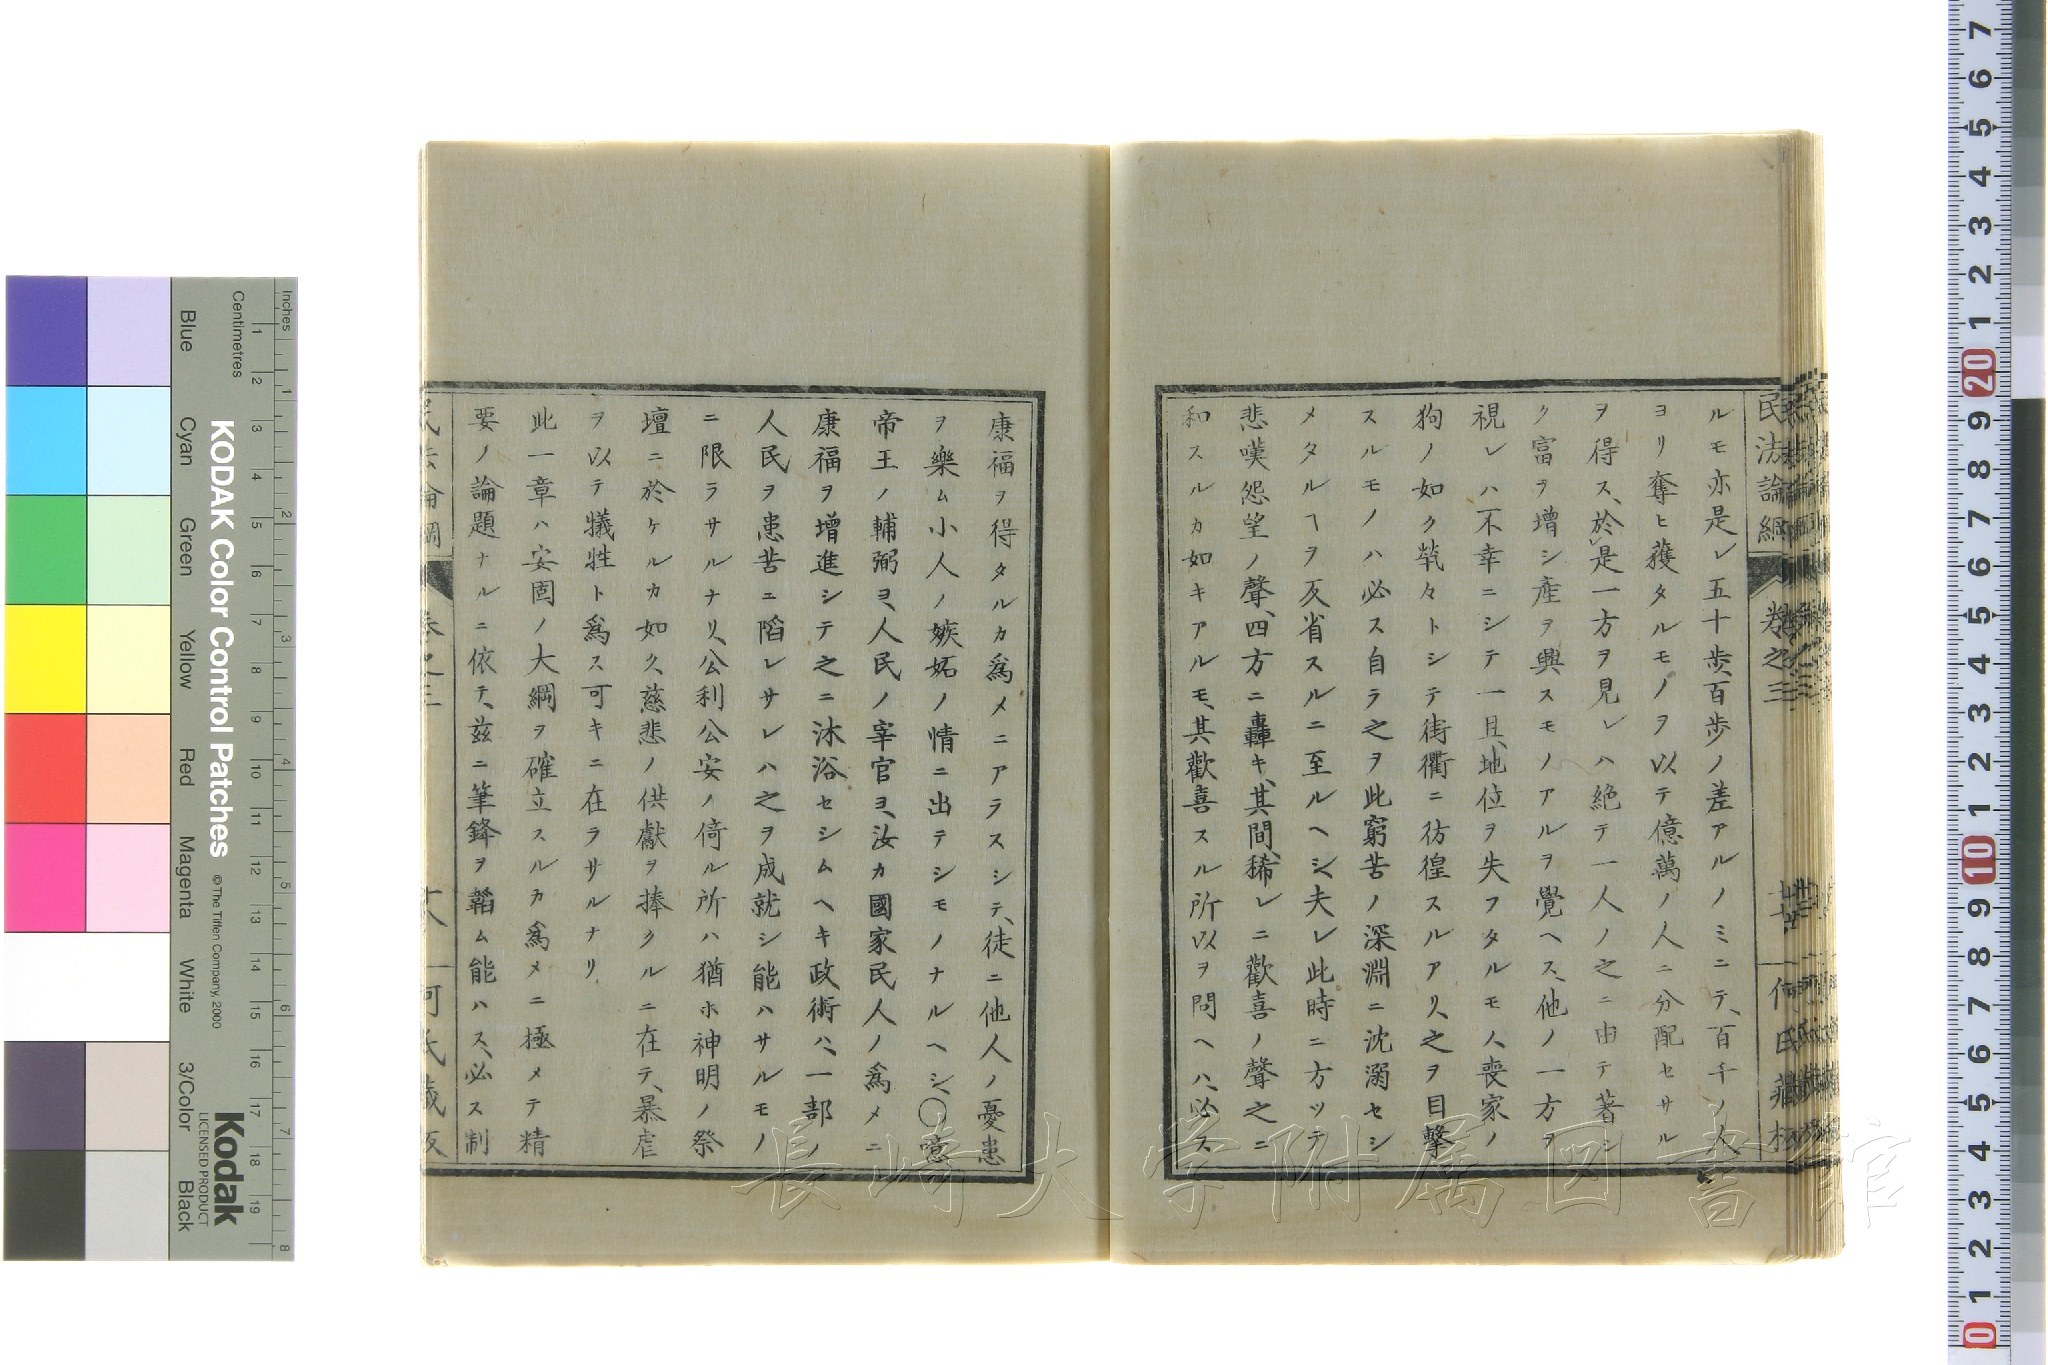 民法論綱 卷之三 何氏藏板
ルモ亦是レ五十歩百歩ノ差アルノミニテ、百千ノ人
ヨリ奪ヒ獲タルモノヲ以テ億萬ノ人ニ分配セサル
ヲ得ス、於是一方ヲ見レハ絶テ一人ノ之ニ由テ著シ
ク富ヲ增シ産ヲ興スモノアルヲ覺ヘス、他ノ一方ヲ
視レハ不幸ニシテ一旦、地位ヲ失フタルモノ、喪家ノ
狗ノ如ク煢々トシテ街衢ニ彷徨スルアリ、之ヲ目擊
スルモノハ必ス自ラ之ヲ此窮苦ノ深淵ニ沈溺セシ
メタルヿヲ反省スルニ至ルヘシ、夫レ此時ニ方ツテ
悲嘆怨望ノ聲、四方ニ轟キ、其間、稀レニ歡喜ノ聲之ニ
和スルカ如キアルモ、其歡喜スル所以ヲ問ヘハ、必ス
康福ヲ得タルカ爲メニアラスシテ、徒ニ他人ノ憂患
ヲ樂ム小人ノ嫉妬ノ情ニ出テシモノナルヘシ、〇噫
帝王ノ輔弼ヨ、人民ノ宰官ヨ、汝カ國家民人ノ爲メニ
康福ヲ增進シテ之ニ沐浴セシムヘキ政術ハ、一部ノ
人民ヲ患苦ニ陷レサレハ之ヲ成就シ能ハサルモノ
ニ限ラサルナリ、公利公安ノ倚ル所ハ猶ホ神明ノ祭
壇ニ於ケルカ如ク、慈悲ノ供獻ヲ捧クルニ在テ、暴虐
ヲ以テ犧牲ト爲ス可キニ在ラサルナリ
此一章ハ安固ノ大綱ヲ確立スルカ爲メニ極メテ精
要ノ論題ナルニ依テ、茲ニ筆鋒ヲ韜ム能ハス、必ス制
民法論綱 卷之三 何氏藏板
長崎大学附属図書館
KODAK Color Control Patches
© The Tiffen Company, 2000
Kodak
LICENSED PRODUCT
Inches
Centimetres
Blue
Cyan
Green
Yellow
Red
Magenta
White
3/Color
Black